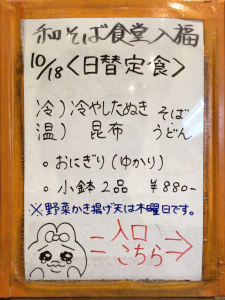 和そば食堂入福
10/18<日替定食>
冷)冷やしたぬき そば
温) 昆布 うどん
・おにぎり(ゆかり)
・小鉢2品 ¥880-
※野菜かき揚げ天は木曜日です。
=入口
こちら⇒